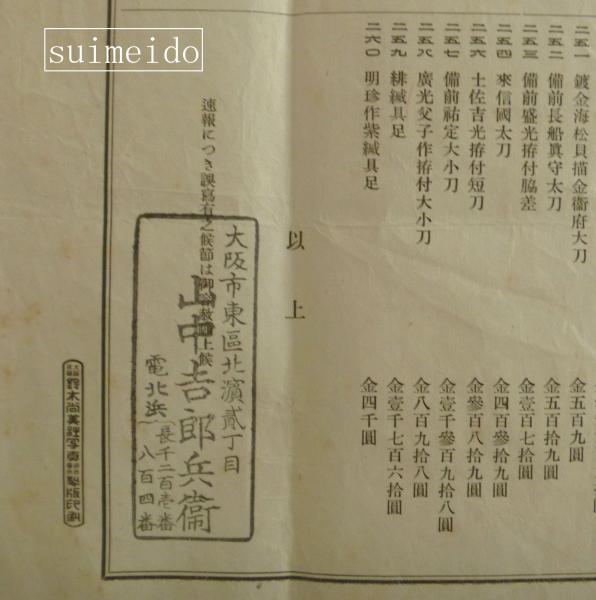 suimeido
二五一 鍍金海松貝描金衞府大刀 金五百九圓
二五二 備前長船眞守太刀 金五百拾九圓
二五三 備前盛光拵付脇差 金壹百七拾圓
二五四 來信國太刀 金四百參拾九圓
二五六 士佐吉光拵付短刀 金參百八拾九圓
二五七 備前祐定大小刀 金壹千參百九拾八圓
二五八 廣光父子作拵付大小刀 金八百九拾八圓
二五九 緋縅具足 金壹千七百六拾圓
二六〇 明珍作紫縅具足 金四千圓
以上
速報につき誤寫有之候節は御容赦 上候
大阪市東區北濱貳丁目
山中吉郎兵衞
電北浜 長千二百壱番
八百四番
鈴木尚美堂 寫眞 製版印刷